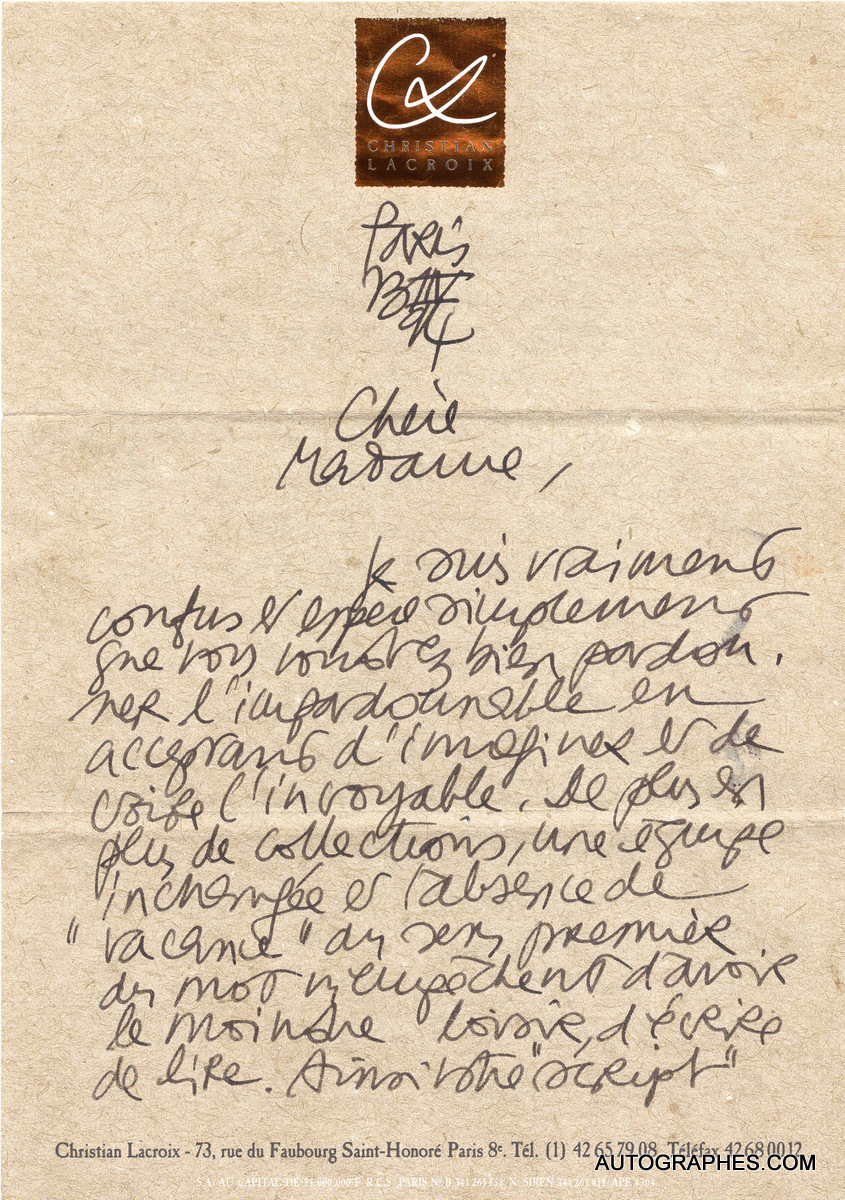 CHRISTIAN
LACROIX
Paris
94
Chère
Madame,
Je suis vraiment
confus et espère simplement
que vous voudrez bien pardon-
ner l'impardonnable en
acceptant d'imaginer et de
croire l'incroyable. De plus en
plus de collections, une équipe
inchangée et l'absence de
"vacance" au sens premier
du mot m'empêchent d'avoir
le moindre loisir, d'écrire
de lire. Ainsi votre "script"
Christian Lacroix - 73, rue du Faubourg Saint-Honoré Paris 8e. Tél. (1) 42 65 79 08 Téléfax 42 68 00 12
AUTOGRAPHES.COM
S.A. AU CAPITAL DE F. R.C.S. PARIS N° B 341 263 838 N. SIREN 341 263 838 APE